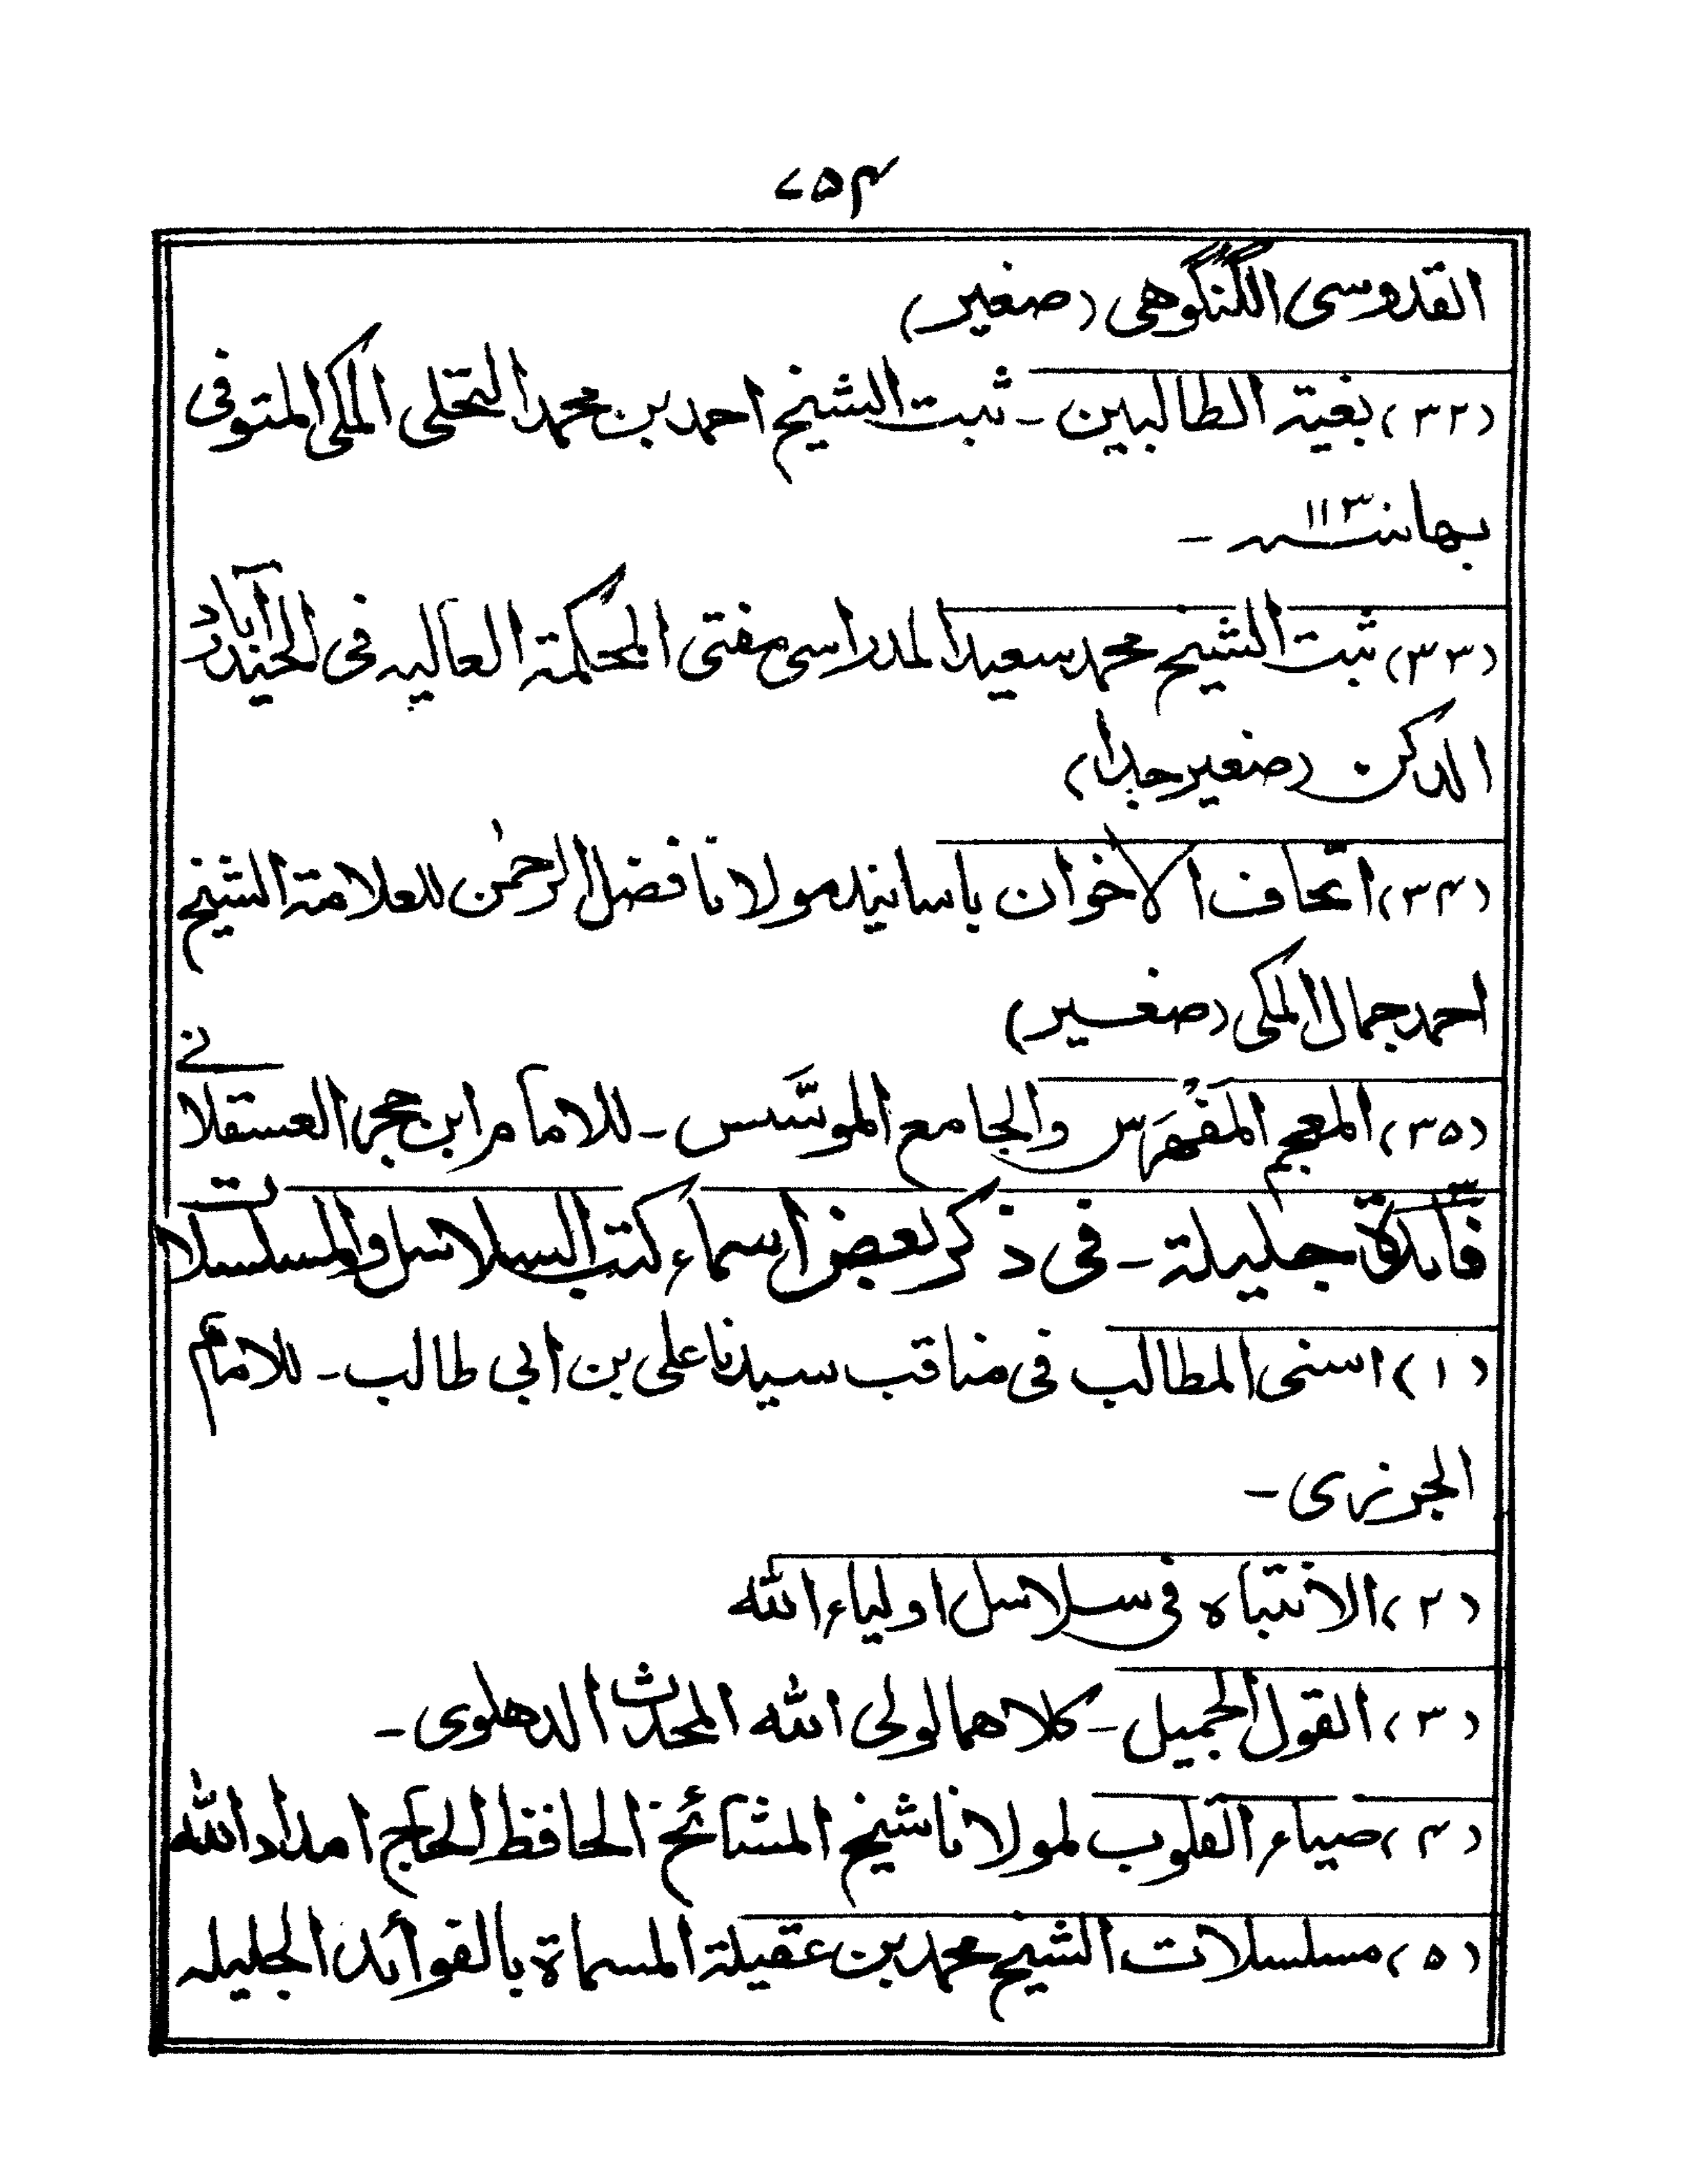 ۷۵۴
القدوسی الگنگوهی (صغیر)
(۳۲) بغیة الطالبین ـ ثبت الشیخ احمد بن محمد النخلی المکی المتوفی
بها سنه ۱۱۳ ـ
(۳۳) ثبت الشیخ محمد سعید المدراسی مفتی المحکمة العالیه فی الحیدرآباد
الدکن (صغیر جدا)
(۳۴) اتحاف الاخوان باسانید مولانا فضل الرحمٰن للعلامة الشیخ
احمد جمال المکی (صغیر)
(۳۵) المعجم المَفْهَرَس والجامع الموسَّس ـ للامام ابن حجر العسقلانی
فائدة جلیلة ـ فی ذکر بعض اسماء کتب السلاسل والمسلسلات
(۱) اسنی المطالب فی مناقب سیدنا علی بن ابی طالب ـ للامام
الجزری ـ
(۲) الانتباه فی سلاسل اولیاء الله
(۳) القول الجمیل ـ کلاهما لولی الله المحدث الدهلوی ـ
(۴) ضیاء القلوب لمولانا شیخ المشائخ الحافظ الحاج امداد الله
(۵) مسلسلات الشیخ محمد بن عقیلة المسماة بالفوائد الجلیله